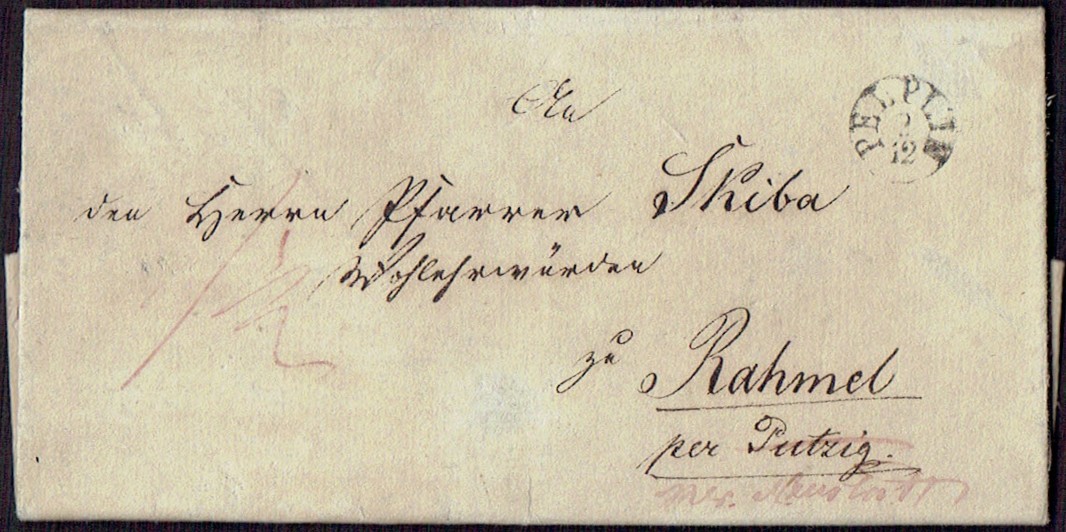 PELPLIN
2
12
An
den Herrn Pfarrer Skiba
Wohlehrwürden
zu Rahmel
per Putzig.
Neustadt